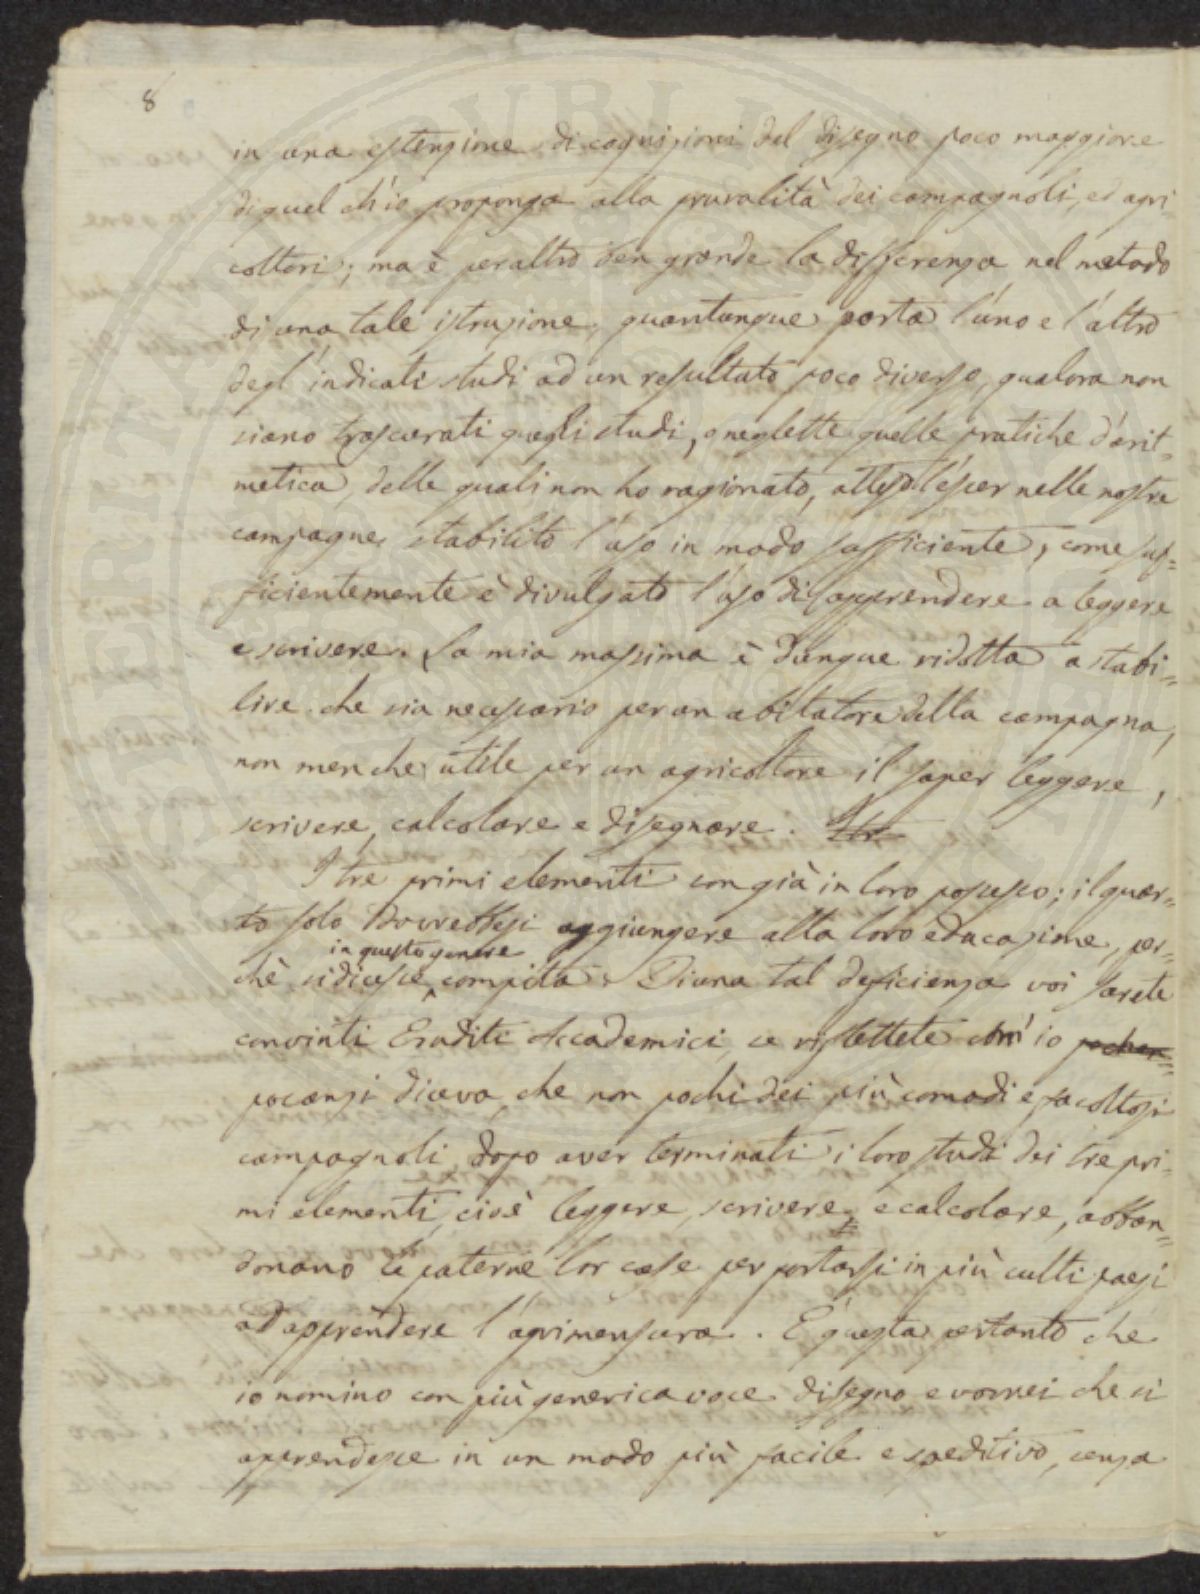 8
in una estensione di cognizioni del disegno poco maggiore
di quel ch'io proponga alla pruralità dei campagnoli, ed agri-
coltori; ma è peraltro ben grande la differenza nel metodo
di una tale istruzione, quantunque porta l'uno e l'altro
degl'indicati studi ad un resultato poco diverso, qualora non
siano trascurati quegli studi, o neglette quelle pratiche d'arit-
metica, delle quali non ho ragionato, atteso l'esser nelle nostre
campagne stabilito l'uso in modo sufficiente, come suf-
ficientemente è divulgato l'uso di apprendere a leggere
e scrivere. La mia massima è dunque ridotta a stabi-
lire che sia necessario per un abitatore della campagna,
non men che utile per un agricoltore il saper leggere,
scrivere, calcolare e disegnare.
I tre primi elementi son già in loro possesso; il quar-
to solo dovrebbesi aggiungere alla loro educazione, per-
in questo genere
chè si dicesse compita. Di una tal deficienza voi sarete
convinti Eruditi Accademici, se riflettete ch' io
pocanzi diceva, che non pochi dei più comodi e facoltosi
campagnoli, dopo aver terminati i loro studi dei tre pri-
mi elementi, cioè leggere, scrivere, e calcolare, abban-
donano le paterne lor case per portarsi in più culti paesi
ad apprendere l'agrimensura. È questa pertanto che
io nomino con più generica voce disegno e vorrei che si
aprendesse in un modo più facile e speditivo, senza